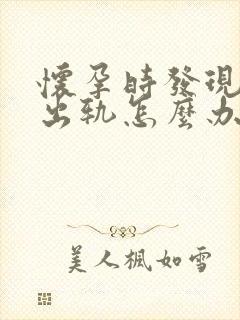 懷孕時發現
出轨怎麼办
美人楓如雪